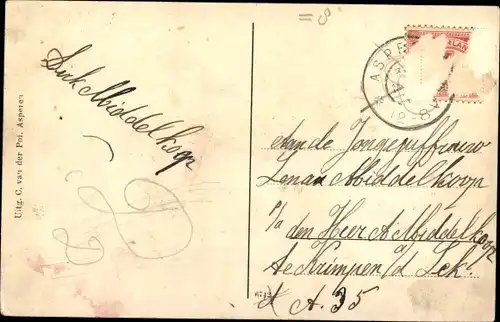 Dick Middelkoop
Uitg. C. van der Pol, Asperen
ASPE
LAN
Aan de Jongejuffrouw
Lena Middelkoop
p/a den Heer A Middelkoop
te Krimpen a/d Lek
A. 35